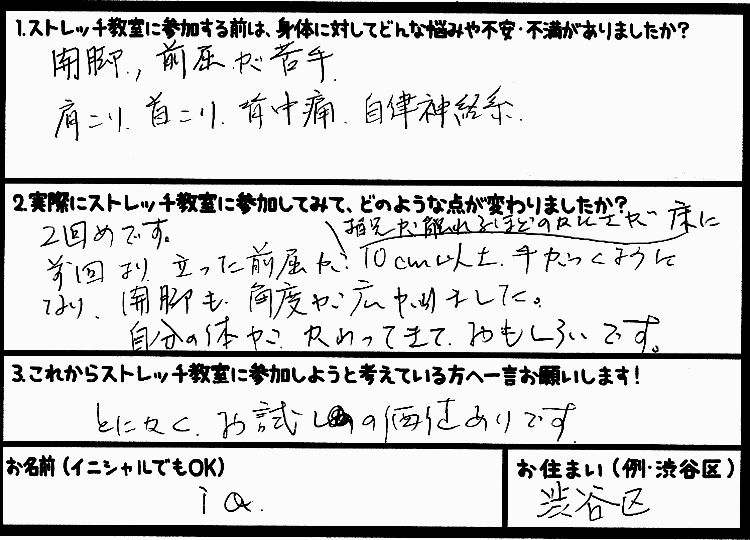 1.ストレッチ教室に参加する前は、身体に対してどんな悩みや不安・不満がありましたか？
開脚, 前屈が苦手.
肩こり. 首こり. 背中痛. 自律神経系.
2.実際にストレッチ教室に参加してみて、どのような点が変わりましたか？
2回めです。
前回より、立った前屈が、10cm以上、手がつくように
なり、開脚も、角度が広がりました。
自分の体が、変わってきて、おもしろいです。
3.これからストレッチ教室に参加しようと考えている方へ一言お願いします！
とにかく、お試しの価値ありです.
お名前（イニシャルでもOK）
お住まい（例・渋谷区）
渋谷区